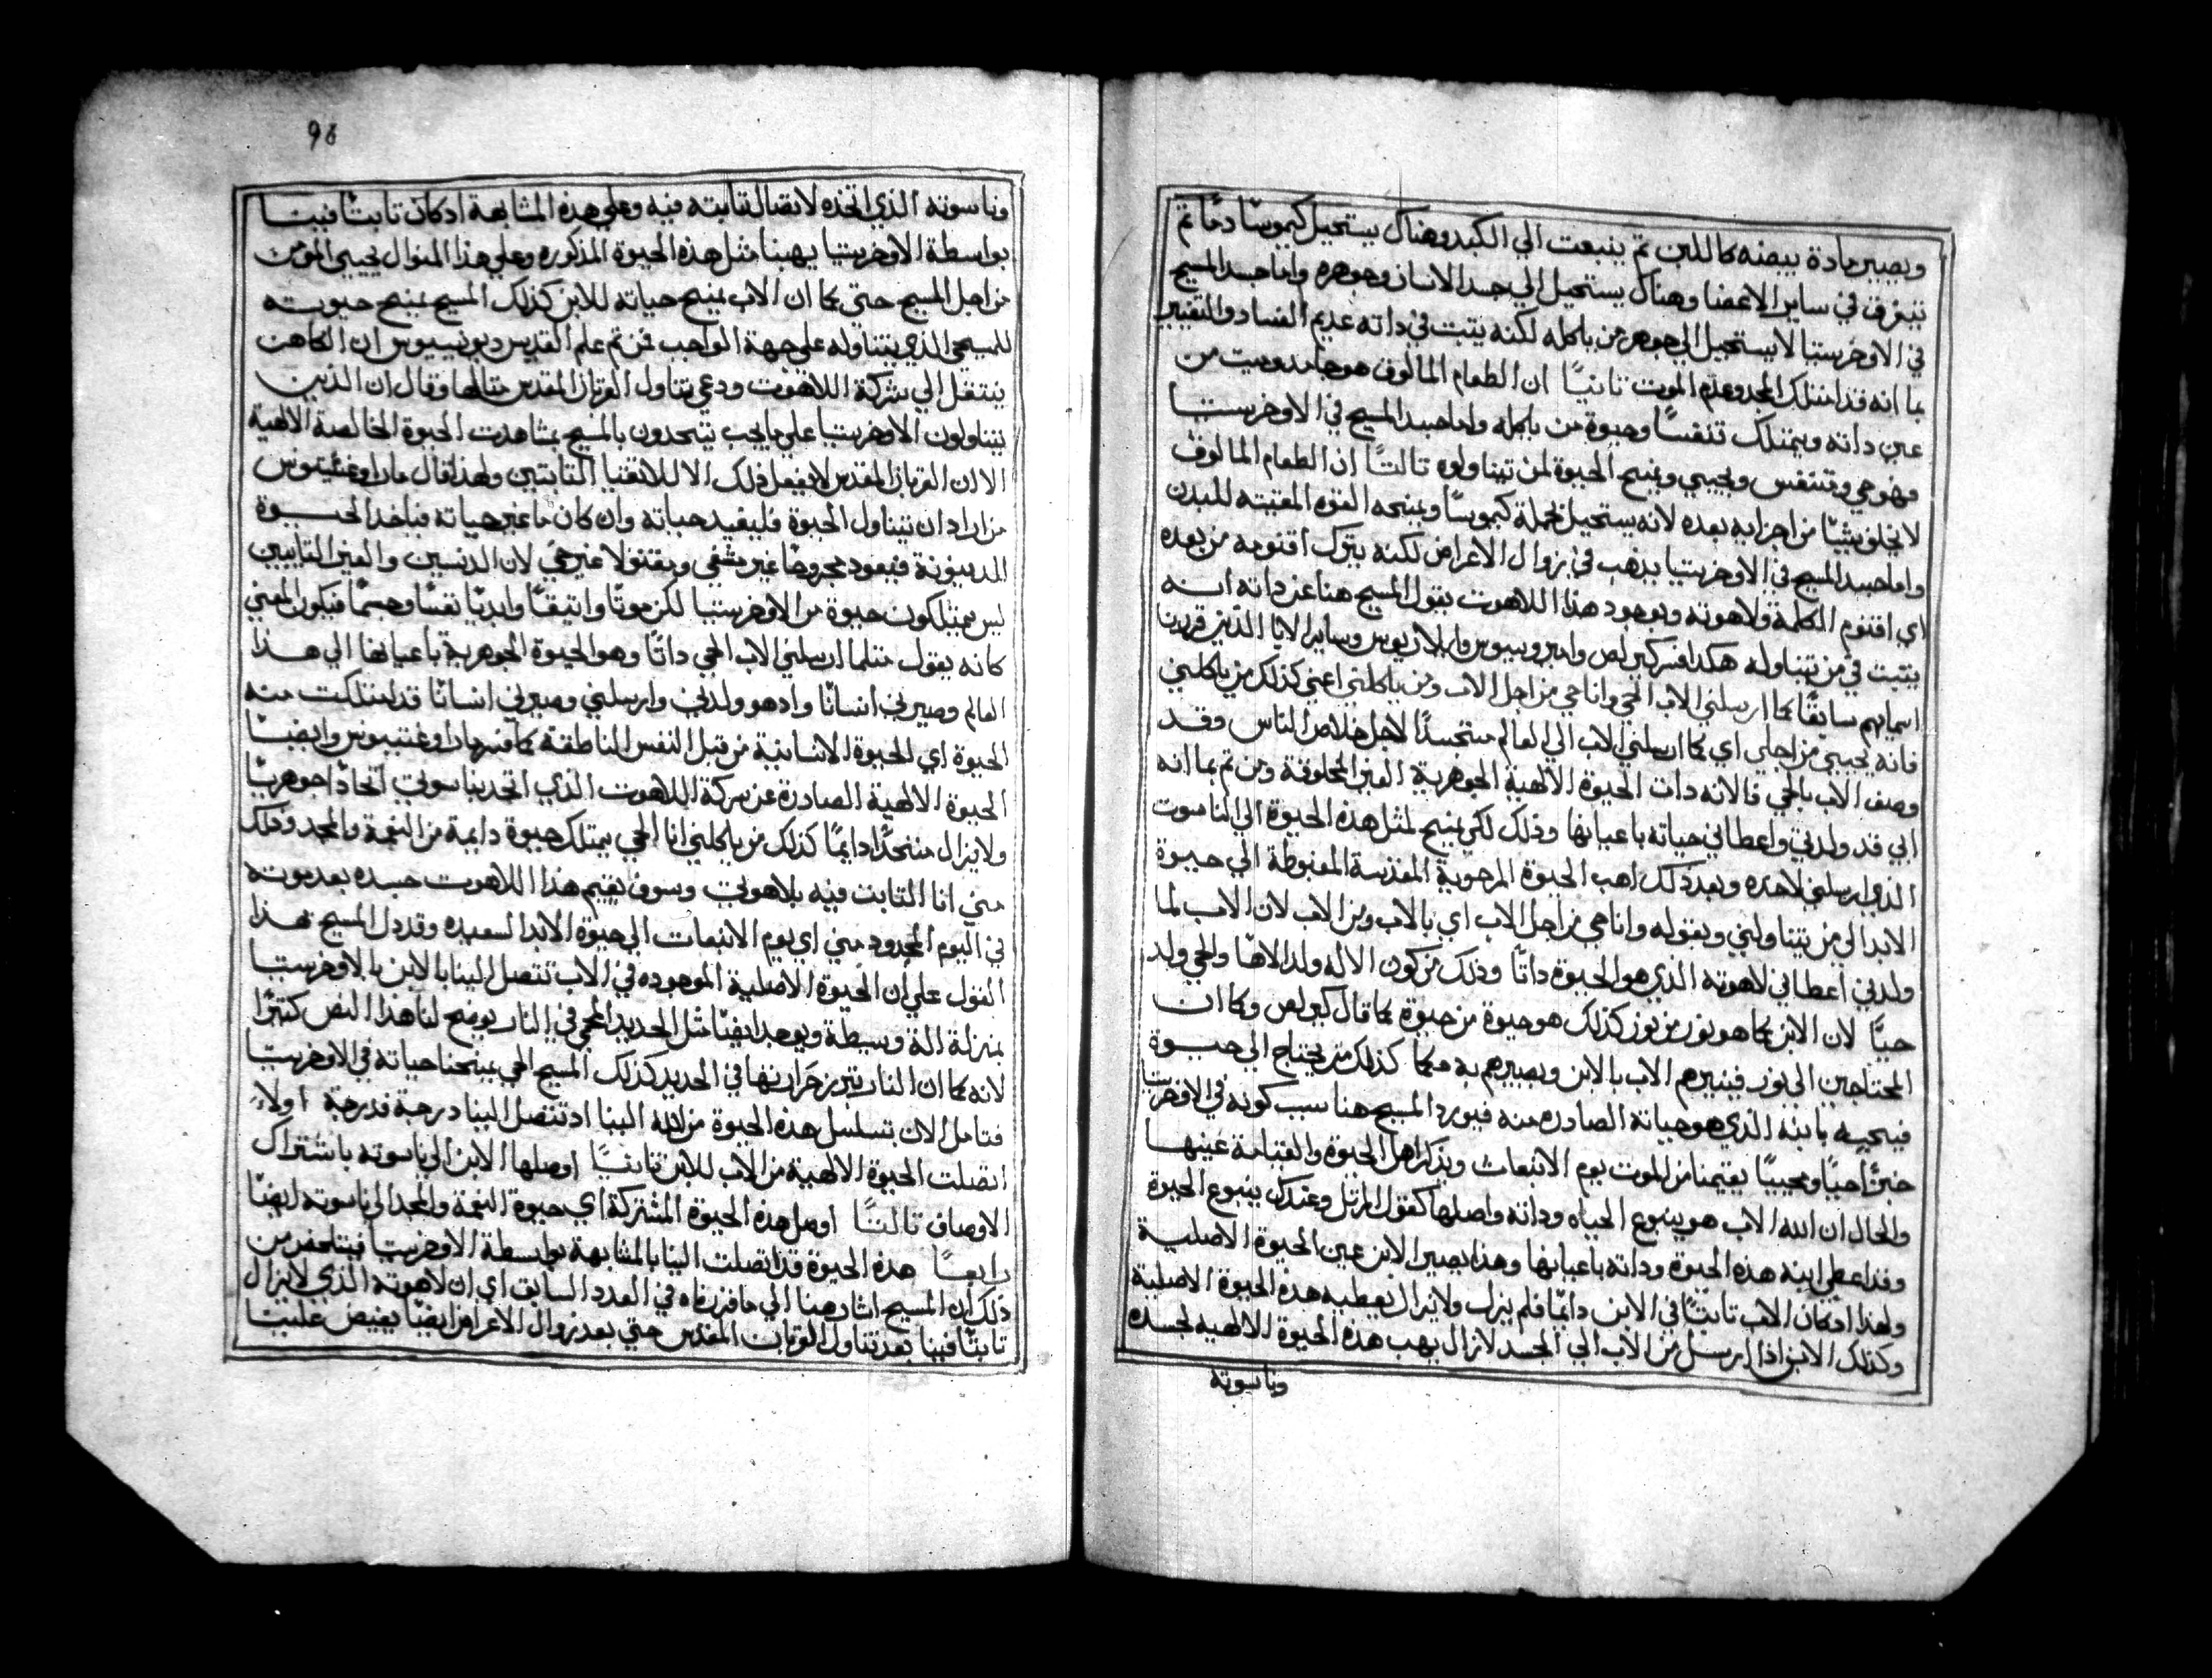 ويصير مادة بيضه كاللبن ثم ينبعت الي الكبد وهناك يستحيل كيموسًا دمًا ثم
يتفرق في ساير الاعضا وهناك يستحيل الي جسد الانسان وجوهره واما جسد المسيح
في الاوخرستيا لا يستحيل الي جوهر من ياكله لكنه يتبت في داته عديم الفساد والتغيير
بما انه قد امتلك المجد وعدم الموت تانيًا ان الطعام المالوف هو جامد وميت من
عين داته ويمتلك تنفسًا وحيوة من ياكله واما جسد المسيح في الاوخرستيا
فهو حي ومتنفس ويحيي ويمنح الحيوة لمن تيناوله تالتًا ان الطعام المالوف
لا يخلف شيًا من اجزايه بعده لانه يستحيل بجملة كيموسًا ويمنحه القوه المقيته للبدن
واما جسد المسيح في الاوخرستيا يدهب في زوال الاعراض لكنه يترك اقنومه من بعده
اي اقنوم الكلمة ولاهوته وبوجود هذا اللاهوت يقول المسيح هنا عن داته انه
يتبت في من يتناوله هكدا فسر كيرلص وامبروسيوس وايلاريوس وساير الابا الذين قررنا
اسمايهم سابقًا كما ارسلني الاب الحي وانا حي من اجل الاب ومن ياكلني اعني كذلك من ياكلني
فانه يحيي من اجلي اي كما ارسلني الاب الي العالم متجسدًا لاجل خلاص الناس وقد
وصف الاب بالحي فالانه دات الحيوة الالهية الجوهرية الغير المخلوقة ومن تم بما انه
ابي قد ولدني واعطاني حياته باعيانها وذلك لكي يمنح لمثل هذه الحيوة الي الناسوت
الذي ارسلني لاخده وبعد ذلك اهب الحيوة المرجوية المقدسة المغبوطة الي حيوة
الابد الي من يتناولني وبقوله وانا حي من اجل الاب اي بالاب ومن الاب لان الاب لما
ولدني اعطاني لاهوته الذي هو الحيوة داتًا وذلك من كون الاله ولد الاهًا والحي ولد
حيًا لان الابن كما هو نور من نور كذلك هو حيوة من حيوة كما قال كيرلص وكما ان
المحتاجين الي نور فينيرهم الاب بالابن ويصيرهم به حكما كذلك من يحتاج الي حيوة
فيحييه بابنه الذي هو حياته الصادره منه فيورد المسيح هنا سبب كونه في الاوخرستيا
خبزًا حيًا ومحييًا يقيمنا من الموت يوم الانبعات ويذكر اصل الحيوة والقيامة عينها
والحال ان الله الاب هو ينبوع الحياه وداته واصلها كقول المرتل وعندك ينبوع الحيوة
وقد اعطي ابنه هذه الحيوة وداته باعيانها وهذا يصير الابن عين الحيوة الاصلية
ولهذا اد كان الاب تابتًا في الابن دايمًا فلم يزل ولا يزال يعطيه هذه الحيوة الاصلية
وكذلك الابن اذا ارسل من الاب الي الجسد لا زال يهب هذه الحيوة الالهيه لجسده
وناسوته
98
وناسوته الذي اتخذه لاتصال تابته فيه وعلي هذه المشابهة اد كان تابتًا فينا
بواسطة الاوخرستيا يهبنا مثل هذه الحيوة المذكوره وعلي هذا المنوال يحيي المومن
من اجل المسيح حتي كما ان الاب يمنح حياته للابن كذلك المسيح يمنح حيوته
للمسيحي الذي يتناوله علي جهة الواجب فمن تم علم القديس ديونيسيوس ان الكاهن
ينتقل الي شركة اللاهوت ودعي تناول القربان المقدس متالها وقال ان الذين
يتناولون الاوخرستيا علي ما يجب يتحدون بالمسيح بمشاهدت الحيوة الخالصة الالهية
الا ان القربان المقدس لا يفعل ذلك الا للاتقيا التابتين ولهذا قال مار اوغسطينوس
من اراد ان يتناول الحيوة فليفيد حياته وان كان ما غير حياته فياخد الحيوة
للدينونة فيعود مجروحًا غير مشفي ومقتولا غير حي لان الدنسين والغير التايبين
ليس يمتلكون حيوة من الاوخرستيا لكن موتًا واتيقًا وابديًا نفسًا وجسمًا فيكون المعني
كانه يقول متلما ارسلني الاب الحي داتًا وهو الحيوة الجوهرية باعيانها الي هذا
العالم وصيرني انسانًا واد هو ولدني وارسلني وصيرني انسانًا قد امتلكت منه
الحيوة اي الحيوة الانسانية من قبل النفس الناطقة كما فسر مار اوغسطينوس وايضًا
الحيوة الالهية الصادرة عن شركة اللاهوت الذي اتحد بناسوتي اتحادًا جوهريًا
ولا يزال متحدًا دايمًا كذلك من ياكلني انا الحي يمتلك حيوة دايمة من النعمة والمجد وذلك
مني انا التابت فيه بلاهوتي وسوف يقيم هذا اللاهوت جسده بعد موته
في اليوم المحدود مني اي يوم الانبعات الي حيوة الابد السعيده وقد دل المسيح بهذا
القول علي ان الحيوة الاصلية الموجوده في الاب تتصل الينا بالابن بالاوخرستيا
بمنزلة الة وسيطة ويوجد ايضًا مثل الحديد المحمي في النار يوضح لنا هذا النص كتيرًا
لانه كما ان النار تبرز حرارتها في الحديد كذلك المسيح الحي يمنحنا حياته في الاوخرستيا
فتامل الان تسلسل هذه الحيوة من الله الينا اد تتصل الينا درجة فدرجة اولاً
اتصلت الحيوة الالهية من الاب للابن تانيًا اوصلها الابن الي ناسوته باشتراك
الاوصاف تالتًا اوصل هذه الحيوة المشتركة اي حيوة النعمة والمجد الي ناسوته ايضًا
رابعًا هذه الحيوة قد اتصلت الينا بالمشابهة بواسطة الاوخرستيا فيتلخص من
ذلك ان المسيح اشار هنا الي ما قررناه في العدد السابق اي ان لاهوته الذي لا يزال
تابتًا فينا بعد تناول القربان المقدس حتي بعد زوال الاعراض ايضًا يفيض علينا